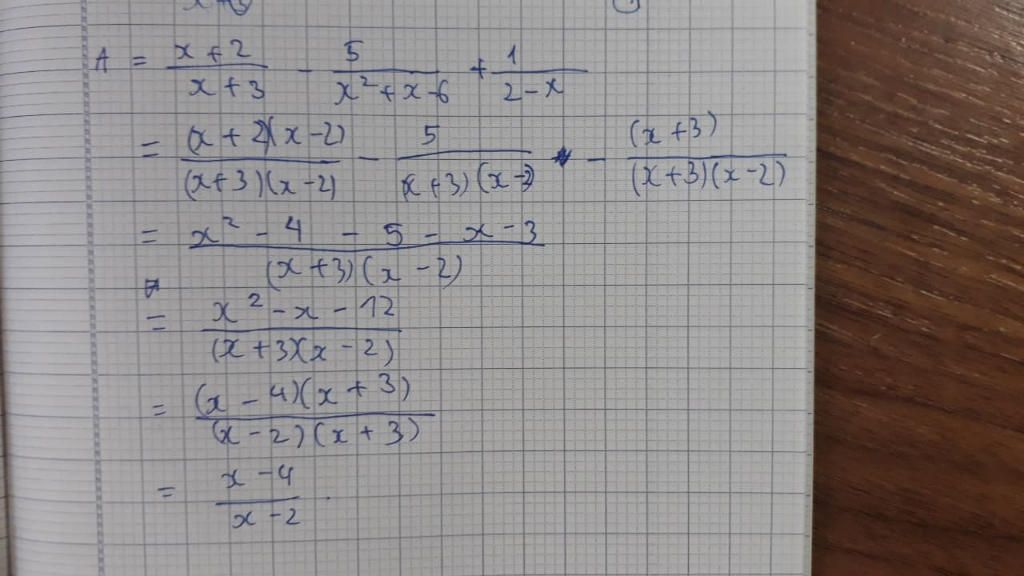 A = \frac{x+2}{x+3} - \frac{5}{x^2+x-6} + \frac{1}{2-x}
= \frac{(x+2)(x-2)}{(x+3)(x-2)} - \frac{5}{(x+3)(x-2)} - \frac{(x+3)}{(x+3)(x-2)}
= \frac{x^2-4-5-x-3}{(x+3)(x-2)}
= \frac{x^2-x-12}{(x+3)(x-2)}
= \frac{(x-4)(x+3)}{(x-2)(x+3)}
= \frac{x-4}{x-2}.